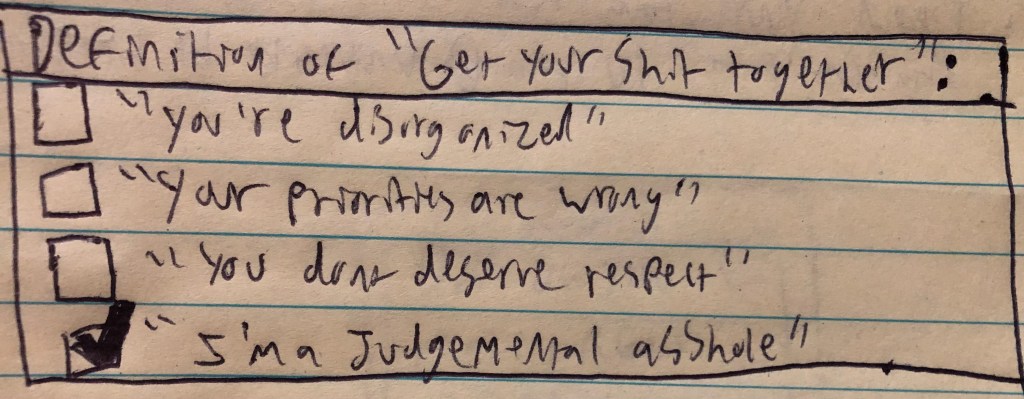 Definition of "Get your shit together":
"you're disorganized"
"Your priorities are wrong"
"You dont deserve respect"
"I'm a Judgemental asshole"